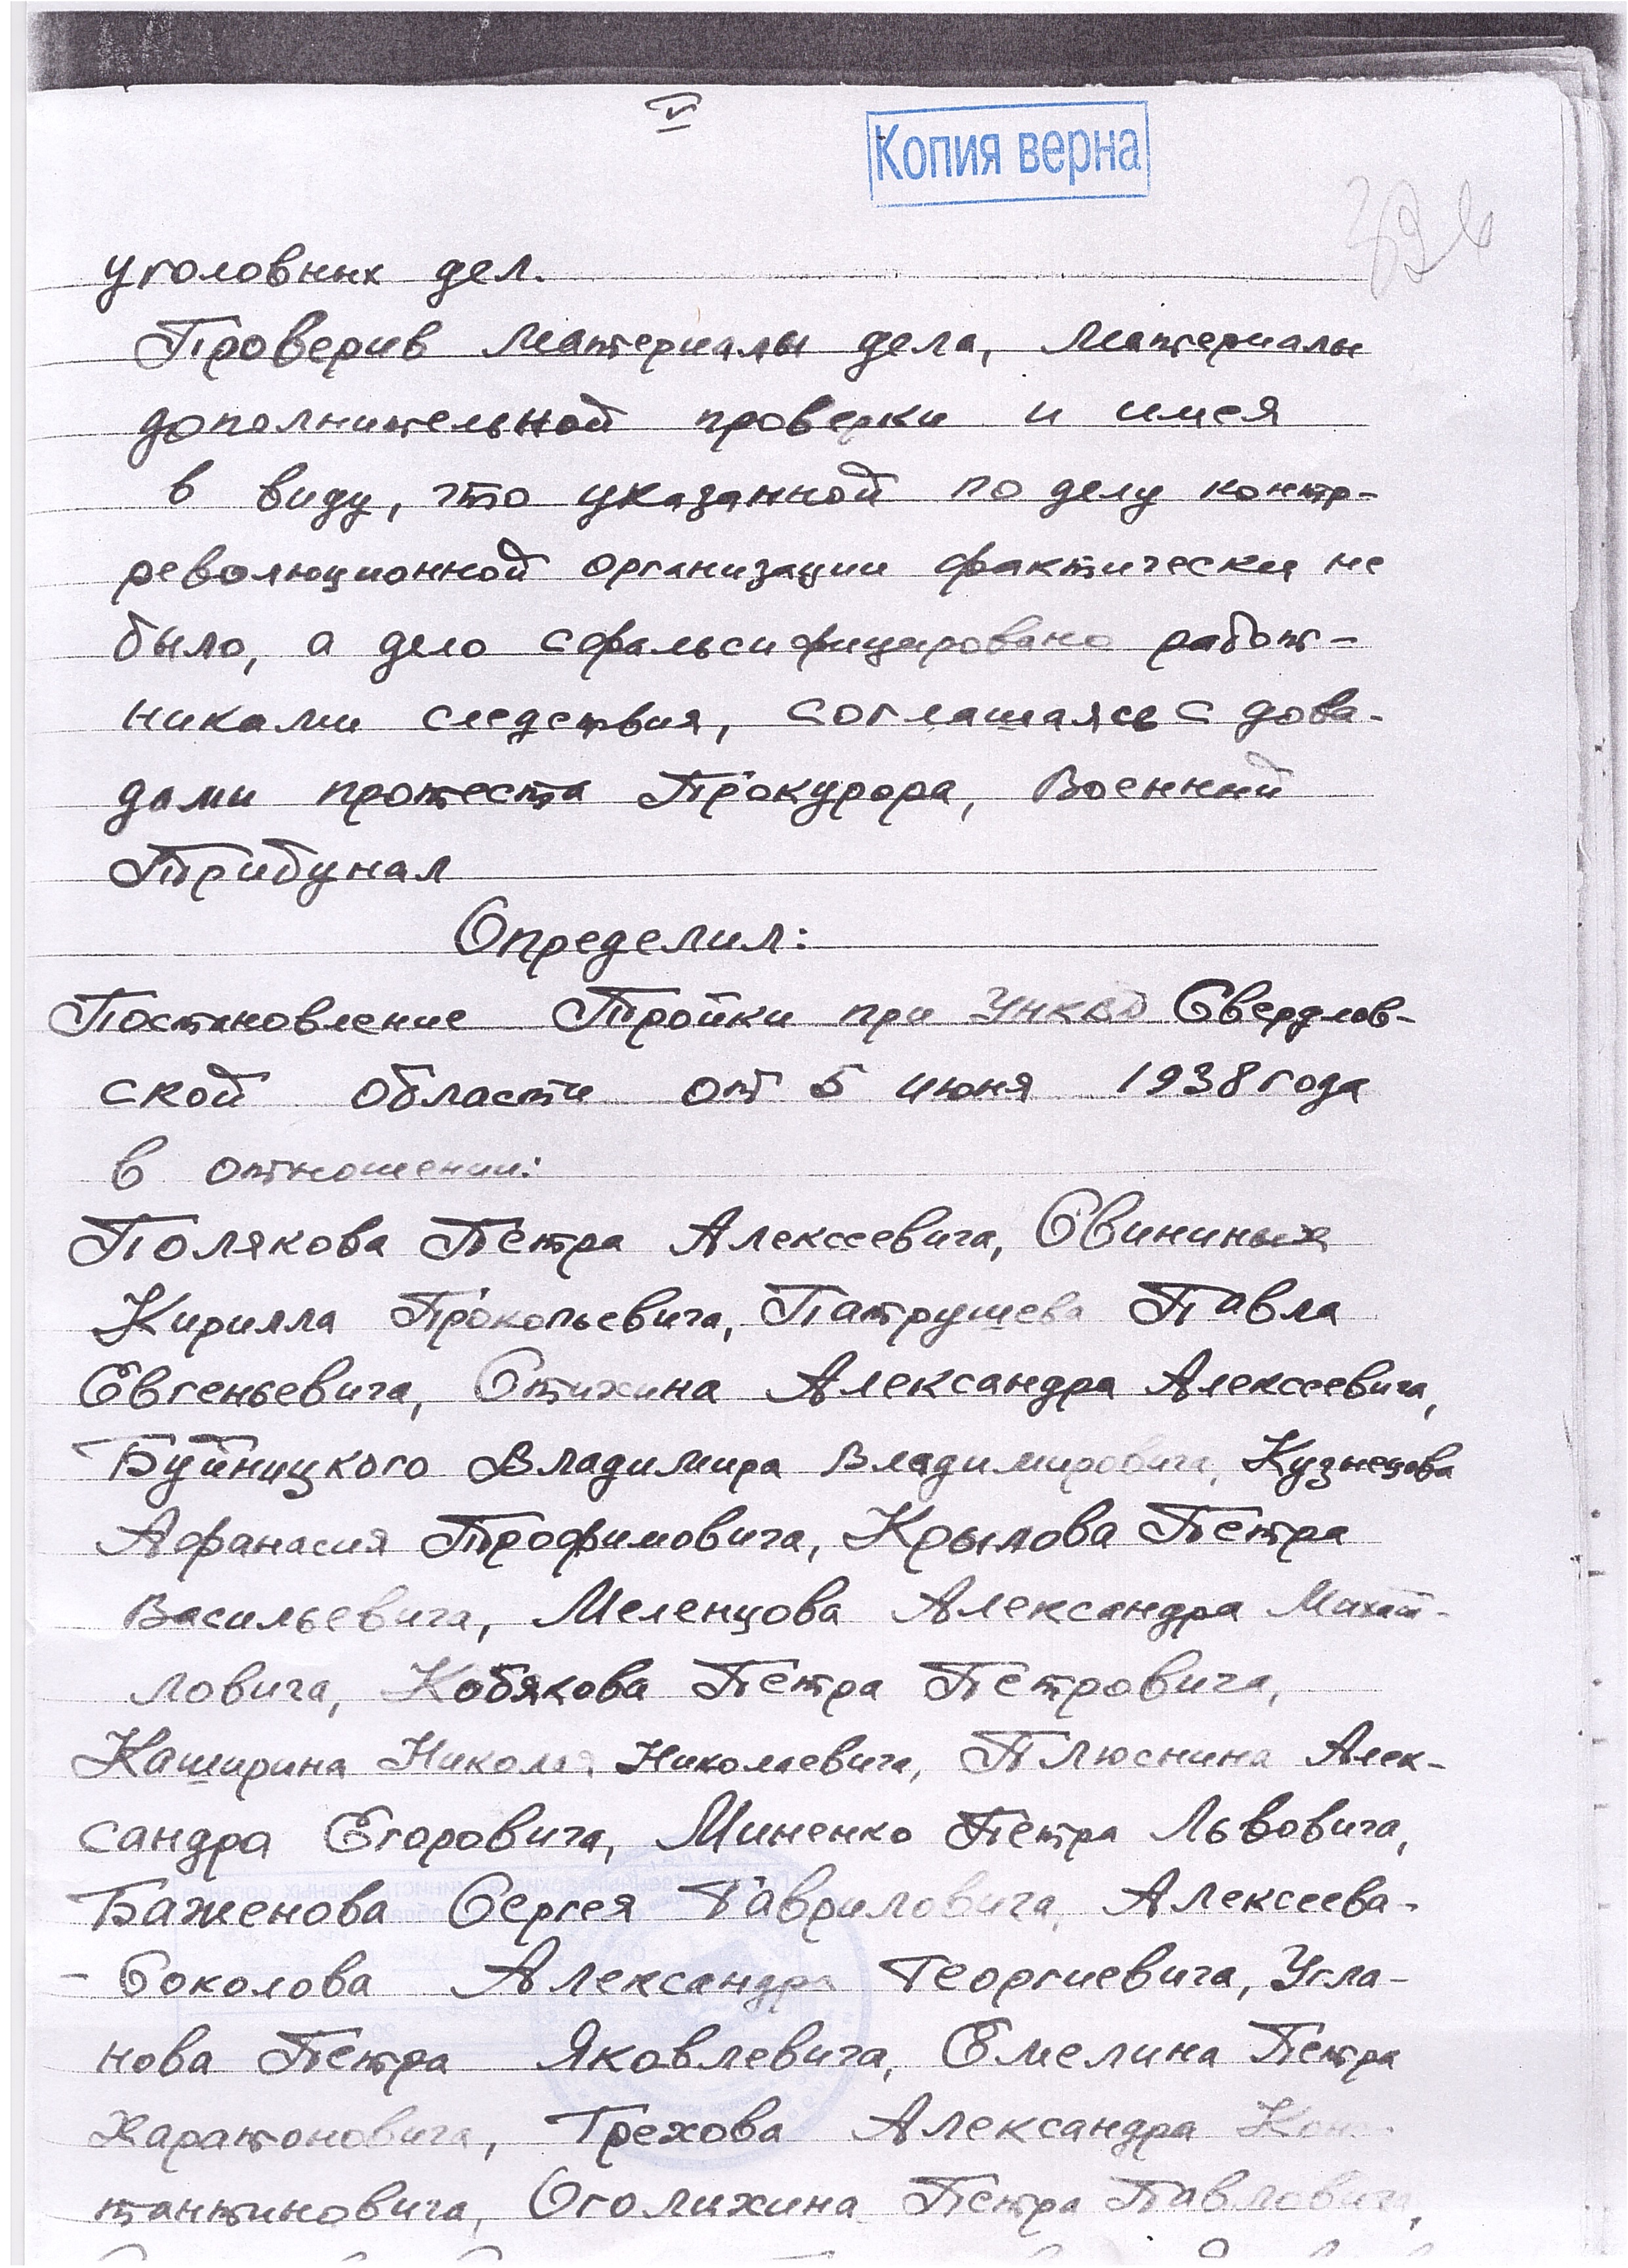 V
Копия верна
уголовных дел.
Проверив материалы дела, материалы
дополнительной проверки и имея
в виду, что указанной по делу контр-
революционной организации фактически не
было, а дело сфальсифицировано работ-
никами следствия, соглашаясь с дова-
дами протеста Прокурора, Военный
Трибунал
Определил:
Постановление Тройки при УНКВД Свердлов-
ской области от 5 июня 1938 года
в отношении:
Полякова Петра Алексеевича, Свининых
Кирилла Прокопьевича, Патрушева Павла
Евгеньевича, Стихина Александра Алексеевича,
Буйницкого Владимира Владимировича, Кузнецова
Афанасия Трофимовича, Крылова Петра
Васильевича, Меленцова Александра Михай-
ловича, Кобякова Петра Петровича,
Каширина Николая Николаевича, Плюснина Алек-
сандра Егоровича, Миненко Петра Львовича,
Баженова Сергея Гавриловича, Алексеева-
-Соколова Александра Георгиевича, Угла-
нова Петра Яковлевича, Емелина Петра
Харитоновича, Трехова Александра Конс-
тантиновича, Оголихина Петра Павловича,